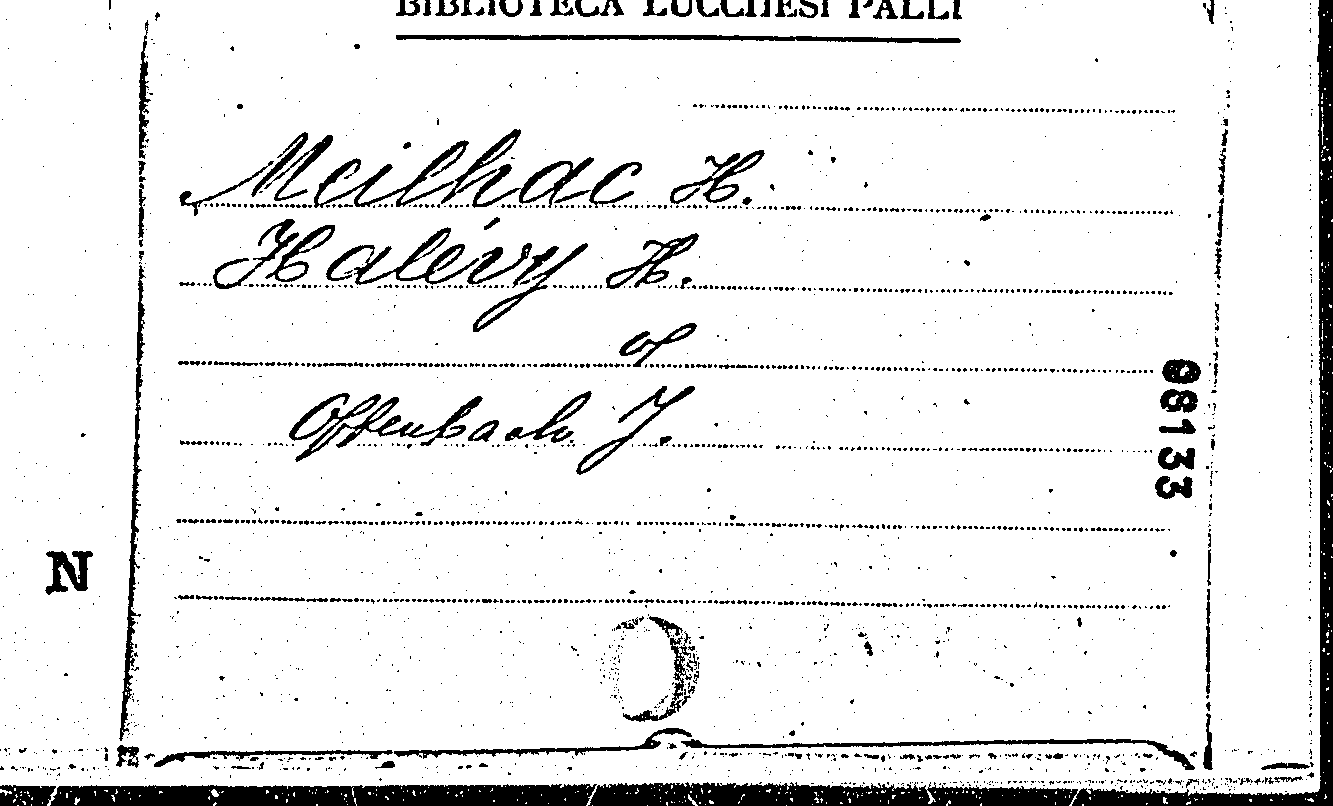 BIBLIOTECA LUCCHESI PALLI
Meilhac H.
Halévy H.
of
Offenbach J.
08133
N